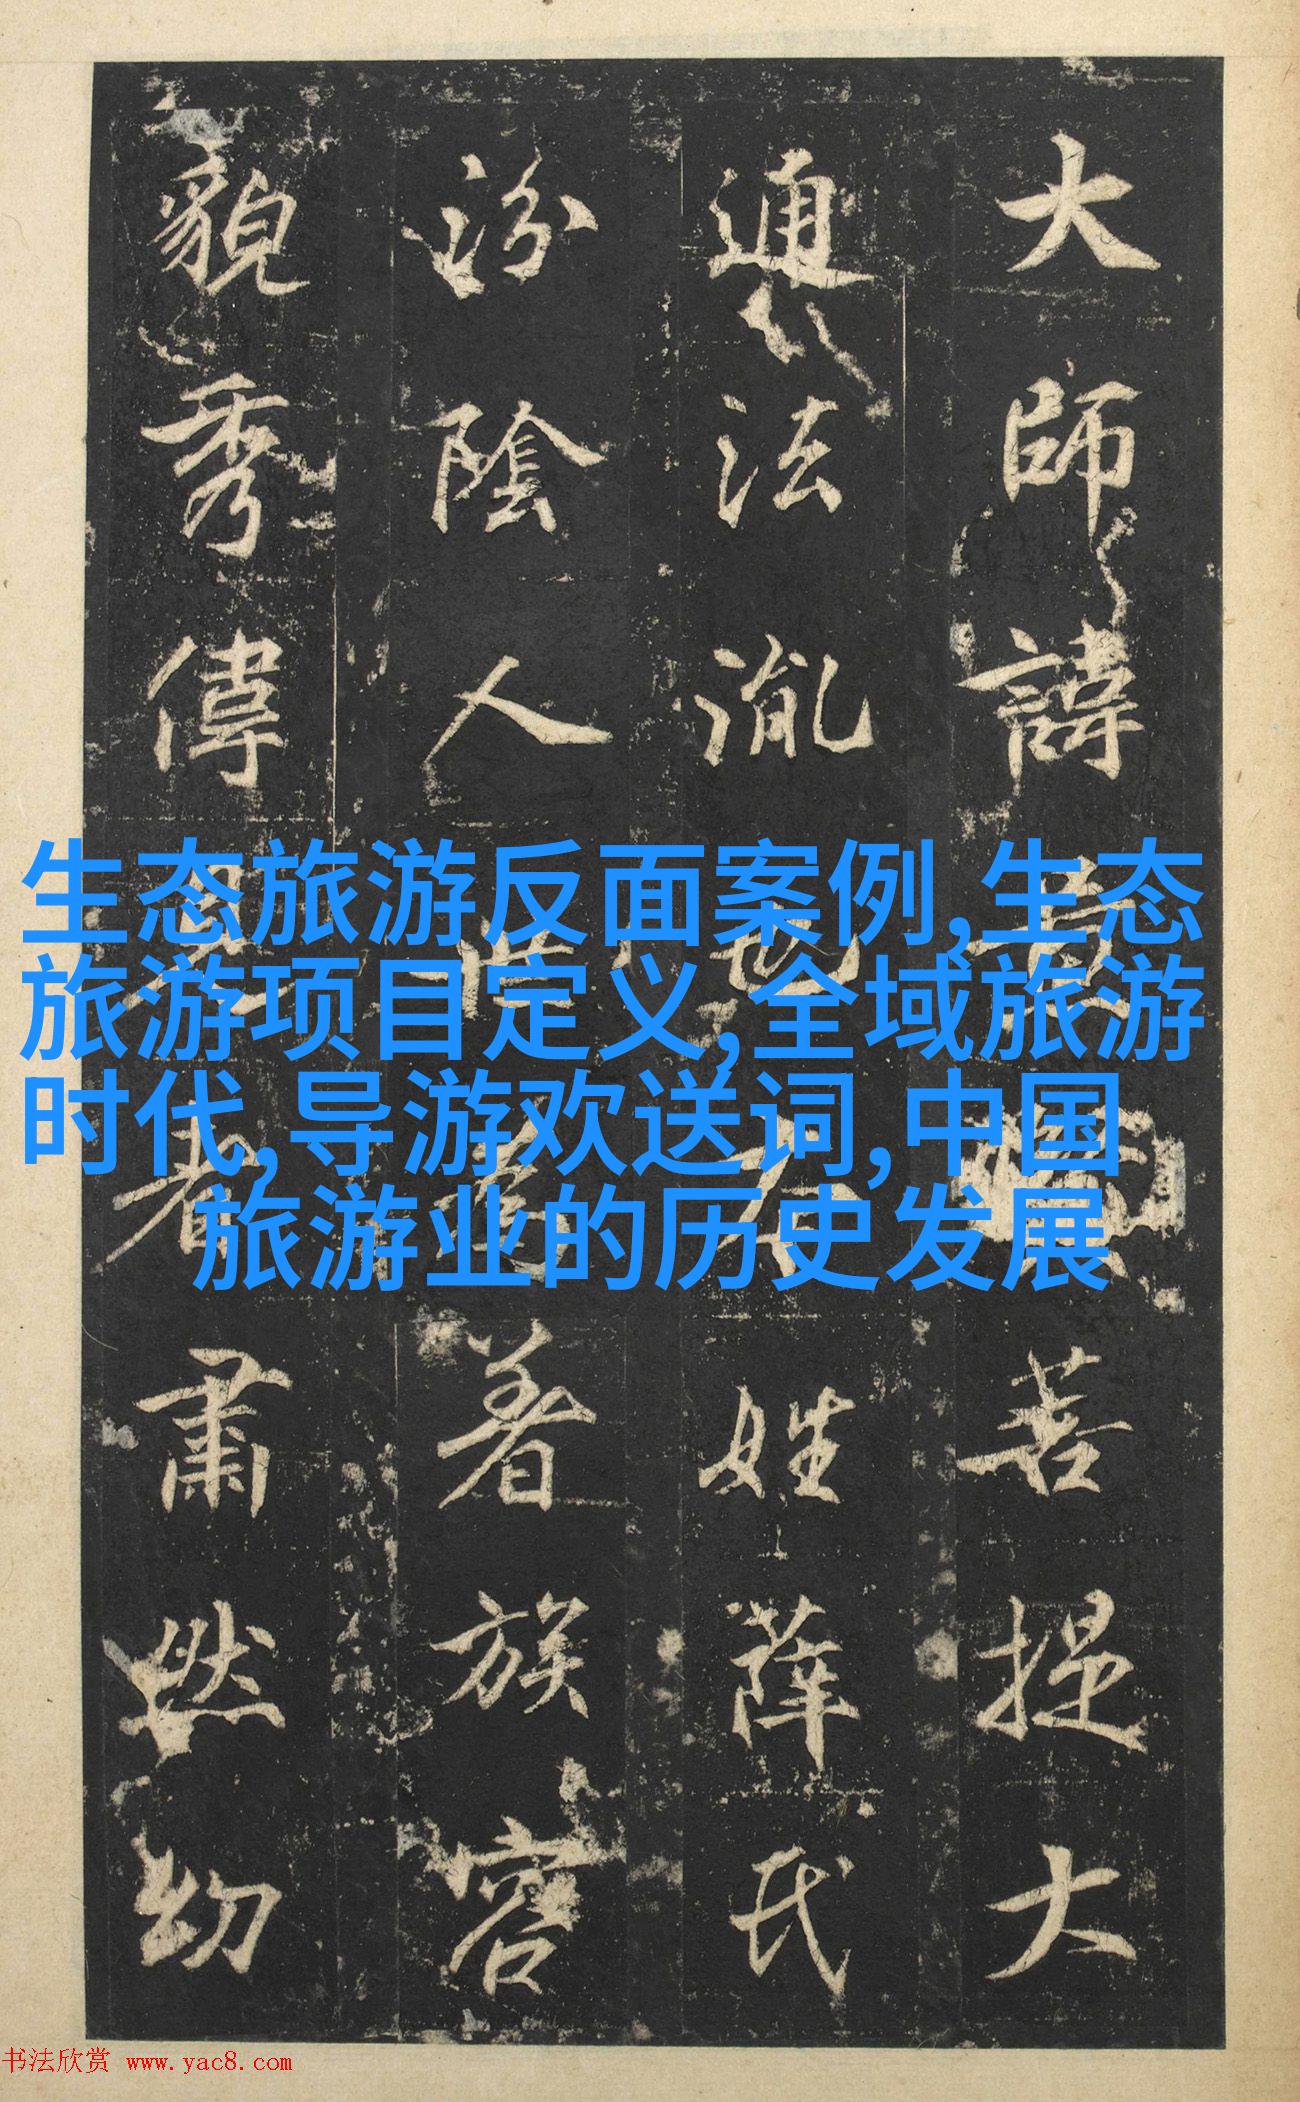 大師諱菩提大
通法胤也姓薛氏
汾陰人著族容
貌秀偉者肅然幼
生态旅游反面案例,生态
旅游项目定义,全域旅游
时代,导游欢送词,中国
旅游业的历史发展
书法欣赏 www.yac8.com